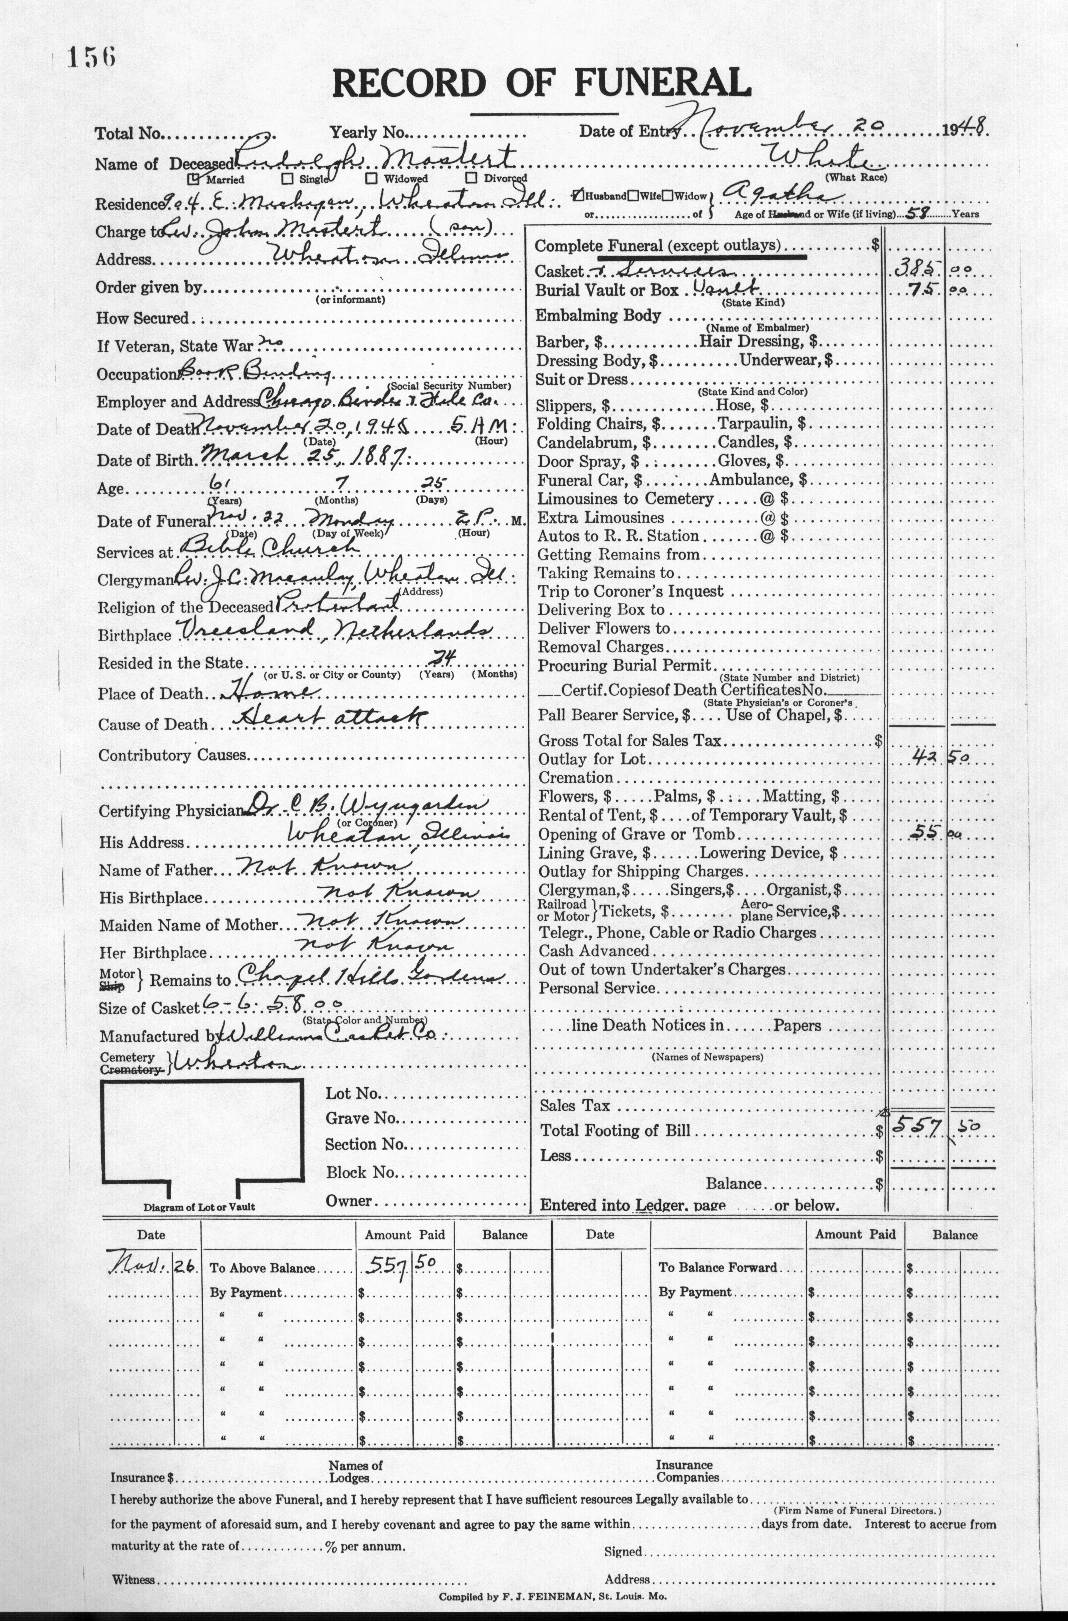 156
RECORD OF FUNERAL
Total No. Yearly No. Date of Entry November 20 1948.
Name of Deceased Rudolph Mostert White
Married Single Widowed Divorced (What Race)
Residence 904 E. Michigan, Wheaton Ill. Husband Wife Widow or of } Agatha
Age of Husband or Wife (if living) 58 Years
Charge to Rev. John Mostert (son)
Address Wheaton Illinois
Order given by
(or informant)
How Secured
If Veteran, State War no
Occupation Book Binding
(Social Security Number)
Employer and Address Chicago Binder & File Co.
Date of Death November 20, 1948 5 A M.
(Date) (Hour)
Date of Birth March 25, 1887.
Age 61 7 25
(Years) (Months) (Days)
Date of Funeral Nov. 22 Monday 2 P. M.
(Date) (Day of Week) (Hour)
Services at Bible Church
Clergyman Rev. J.C. Macaulay, Wheaton Ill.
(Address)
Religion of the Deceased Protestant
Birthplace Vreesland, Netherlands
Resided in the State 24
(or U. S. or City or County) (Years) (Months)
Place of Death Home
Cause of Death Heart attack
Contributory Causes
Certifying Physician Dr. C B. Wyngarden
(or Coroner)
His Address Wheaton, Illinois
Name of Father Not Known
His Birthplace not Known
Maiden Name of Mother Not Known
Her Birthplace not Known
Motor Ship } Remains to Chapel Hills Gardens
Size of Casket 6-6. 58 00
(State Color and Number)
Manufactured by Williams Casket Co.
Cemetery Crematory } Wheaton
Lot No.
Grave No.
Section No.
Block No.
Owner
Diagram of Lot or Vault
Complete Funeral (except outlays) $
Casket & Services 385 00
Burial Vault or Box Vault 75 00
(State Kind)
Embalming Body
(Name of Embalmer)
Barber, $ Hair Dressing, $
Dressing Body, $ Underwear, $
Suit or Dress
(State Kind and Color)
Slippers, $ Hose, $
Folding Chairs, $ Tarpaulin, $
Candelabrum, $ Candles, $
Door Spray, $ Gloves, $
Funeral Car, $ Ambulance, $
Limousines to Cemetery @ $
Extra Limousines @ $
Autos to R. R. Station @ $
Getting Remains from
Taking Remains to
Trip to Coroner's Inquest
Delivering Box to
Deliver Flowers to
Removal Charges
Procuring Burial Permit
(State Number and District)
Certif. Copies of Death Certificates No.
(State Physician's or Coroner's
Pall Bearer Service, $ Use of Chapel, $
Gross Total for Sales Tax $
Outlay for Lot 42 50
Cremation
Flowers, $ Palms, $ Matting, $
Rental of Tent, $ of Temporary Vault, $
Opening of Grave or Tomb 55 00
Lining Grave, $ Lowering Device, $
Outlay for Shipping Charges
Clergyman, $ Singers, $ Organist, $
Railroad or Motor } Tickets, $ Aero-plane Service, $
Telegr., Phone, Cable or Radio Charges
Cash Advanced
Out of town Undertaker's Charges
Personal Service
line Death Notices in Papers
(Names of Newspapers)
Sales Tax
Total Footing of Bill $ 557 50
Less $
Balance $
Entered into Ledger, page or below.
Date Amount Paid Balance Date Amount Paid Balance
Nov. 26 To Above Balance 557 50 $ To Balance Forward $
By Payment $ $ By Payment $ $
" " $ $ " " $ $
" " $ $ " " $ $
" " $ $ " " $ $
" " $ $ " " $ $
" " $ $ " " $ $
" " $ $ " " $ $
Insurance $ Names of Lodges Insurance Companies
I hereby authorize the above Funeral, and I hereby represent that I have sufficient resources Legally available to
(Firm Name of Funeral Directors.)
for the payment of aforesaid sum, and I hereby covenant and agree to pay the same within days from date. Interest to accrue from
maturity at the rate of % per annum.
Signed
Witness Address
Compiled by F. J. FEINEMAN, St. Louis. Mo.